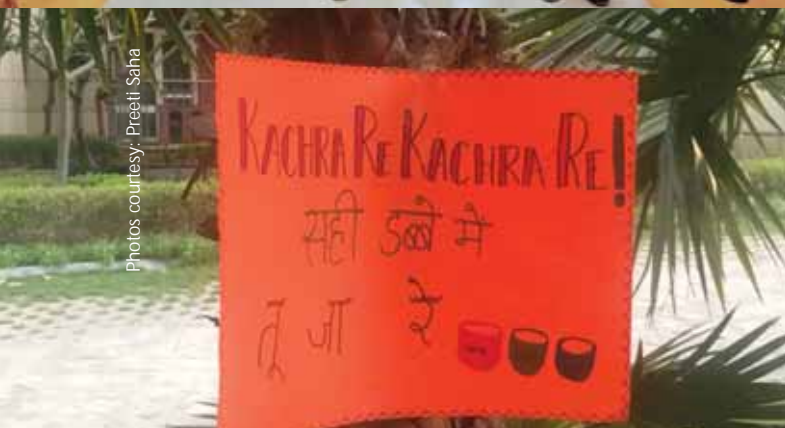 Photos courtesy: Preeti Saha
KACHRA RE KACHRA RE!
सही डब्बे में
तू जा रे